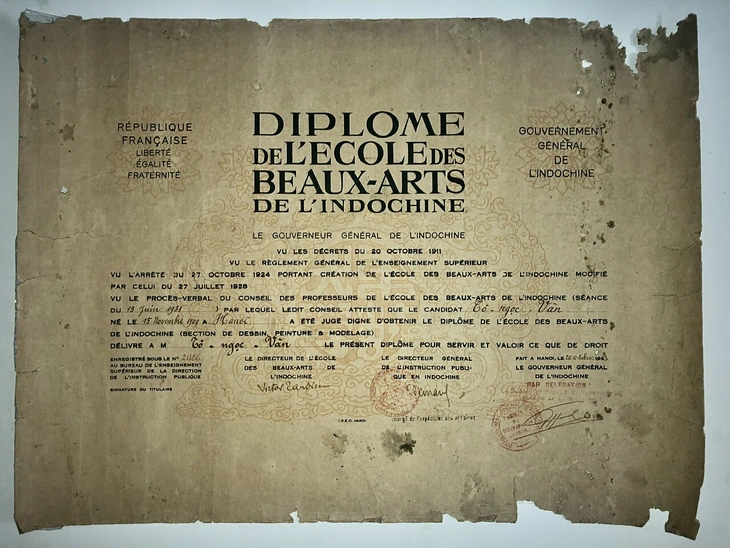 RÉPUBLIQUE
FRANÇAISE
LIBERTÉ
ÉGALITÉ
FRATERNITÉ
DIPLOME
DE L'ECOLE DES
BEAUX-ARTS
DE L'INDOCHINE
GOUVERNEMENT
GÉNÉRAL
DE
L'INDOCHINE
LE GOUVERNEUR GÉNÉRAL DE L'INDOCHINE
VU LES DÉCRETS DU 20 OCTOBRE 1911
VU LE RÈGLEMENT GÉNÉRAL DE L'ENSEIGNEMENT SUPÉRIEUR
VU L'ARRÊTÉ DU 27 OCTOBRE 1924 PORTANT CRÉATION DE L'ÉCOLE DES BEAUX-ARTS DE L'INDOCHINE MODIFIÉ
PAR CELUI DU 27 JUILLET 1928
VU LE PROCÈS-VERBAL DU CONSEIL DES PROFESSEURS DE L'ÉCOLE DES BEAUX-ARTS DE L'INDOCHINE (SÉANCE
DU 13 Juin 1931 ) PAR LEQUEL LEDIT CONSEIL ATTESTE QUE LE CANDIDAT Tô - ngoc - Vân
NÉ LE 15 Novembre A Hanoi A ÉTÉ JUGÉ DIGNE D'OBTENIR LE DIPLÔME DE L'ÉCOLE DES BEAUX-ARTS
DE L'INDOCHINE (SECTION DE DESSIN, PEINTURE & MODELAGE)
DÉLIVRE A M Tô - ngoc - Vân LE PRÉSENT DIPLÔME POUR SERVIR ET VALOIR CE QUE DE DROIT
ENREGISTRÉ SOUS LE N°
AU BUREAU DE L'ENSEIGNEMENT
SUPÉRIEUR DE LA DIRECTION
DE L'INSTRUCTION PUBLIQUE
SIGNATURE DU TITULAIRE
LE DIRECTEUR DE L'ÉCOLE
DES BEAUX-ARTS DE
L'INDOCHINE
Victor Tardieu
LE DIRECTEUR GÉNÉRAL
DE L'INSTRUCTION PUBLI-
QUE EN INDOCHINE
chargé de l'expédition des affaires
FAIT A HANOI, LE 20 octobre
LE GOUVERNEUR GÉNÉRAL
DE L'INDOCHINE
PAR DÉLÉGATION
I.D.E.O. HANOI